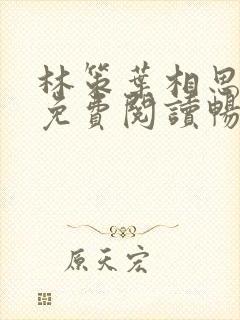 林策葉相思
免費閱讀暢
原天宏